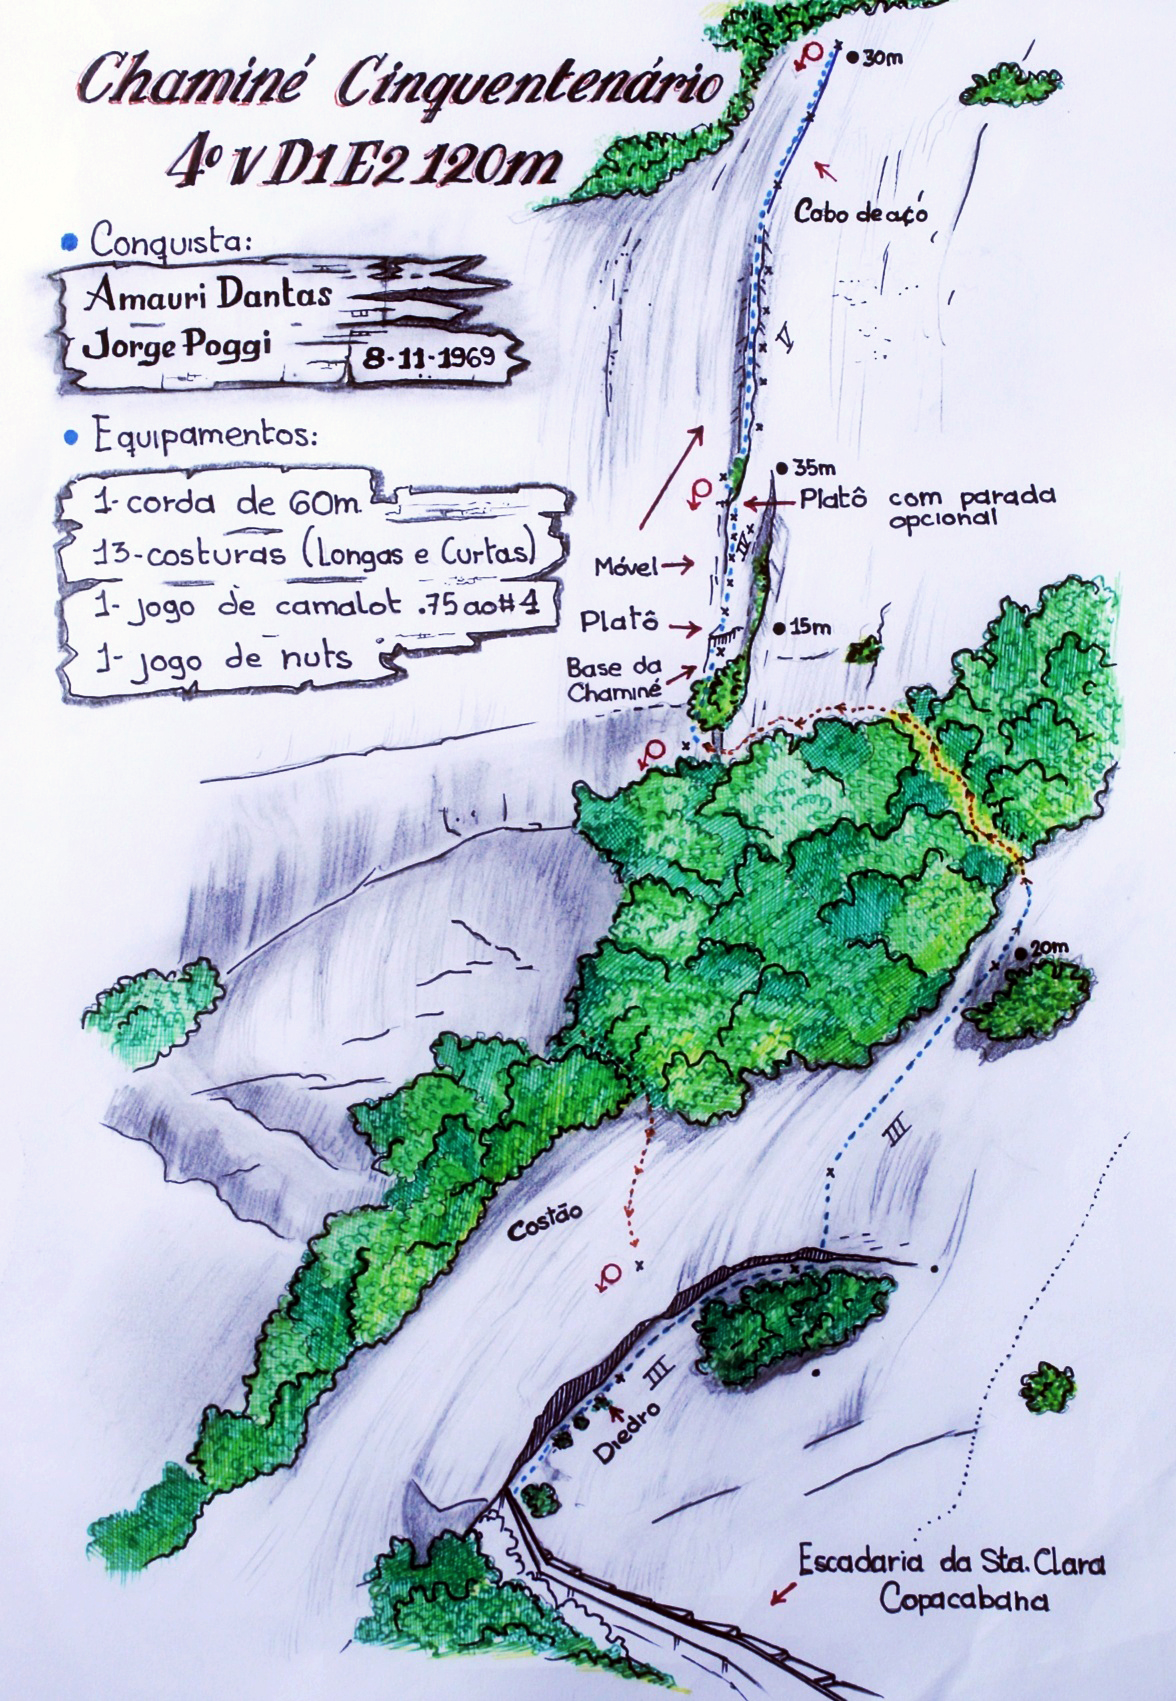 Chaminé Cinquentenário
4º V D1 E2 120m
Conquista:
Amauri Dantas
Jorge Poggi
8-11-1969
Equipamentos:
1- corda de 60m
13-costuras (Longas e Curtas)
1- jogo de camalot .75 ao #4
1- jogo de nuts
30m
Cabo de aço
V
35m
Platô com parada
opcional
IV
Móvel
Platô
15m
Base da
Chaminé
20m
III
Costão
III
Diedro
Escadaria da Sta. Clara
Copacabana